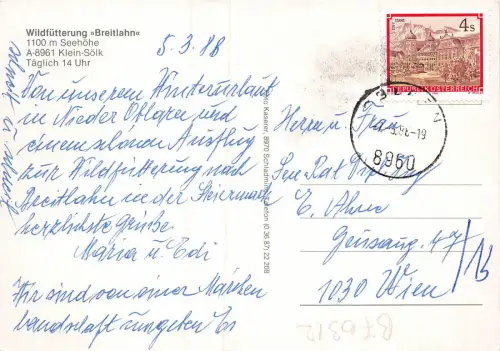 Wildfütterung »Breitlahn«
1100 m Seehöhe
A-8961 Klein-Sölk
Täglich 14 Uhr
5.3.88
Von unserem Winterurlaub
in Nieder Öblarn und
einem schönen Ausflug
zur Wildfütterung nach
Breitlahn in der Steiermark
herzlichste Grüße
Maria u. Edi
Wir sind von einer Märchen
landschaft umgeben Es
8970 Schladming, Telefon (0 36 87) 22 208
4s
REPUBLIK ÖSTERREICH
8960
Herrn u. Frau
Sen. Rat Dipl. Ing
E.
47
1030 Wien
B76312